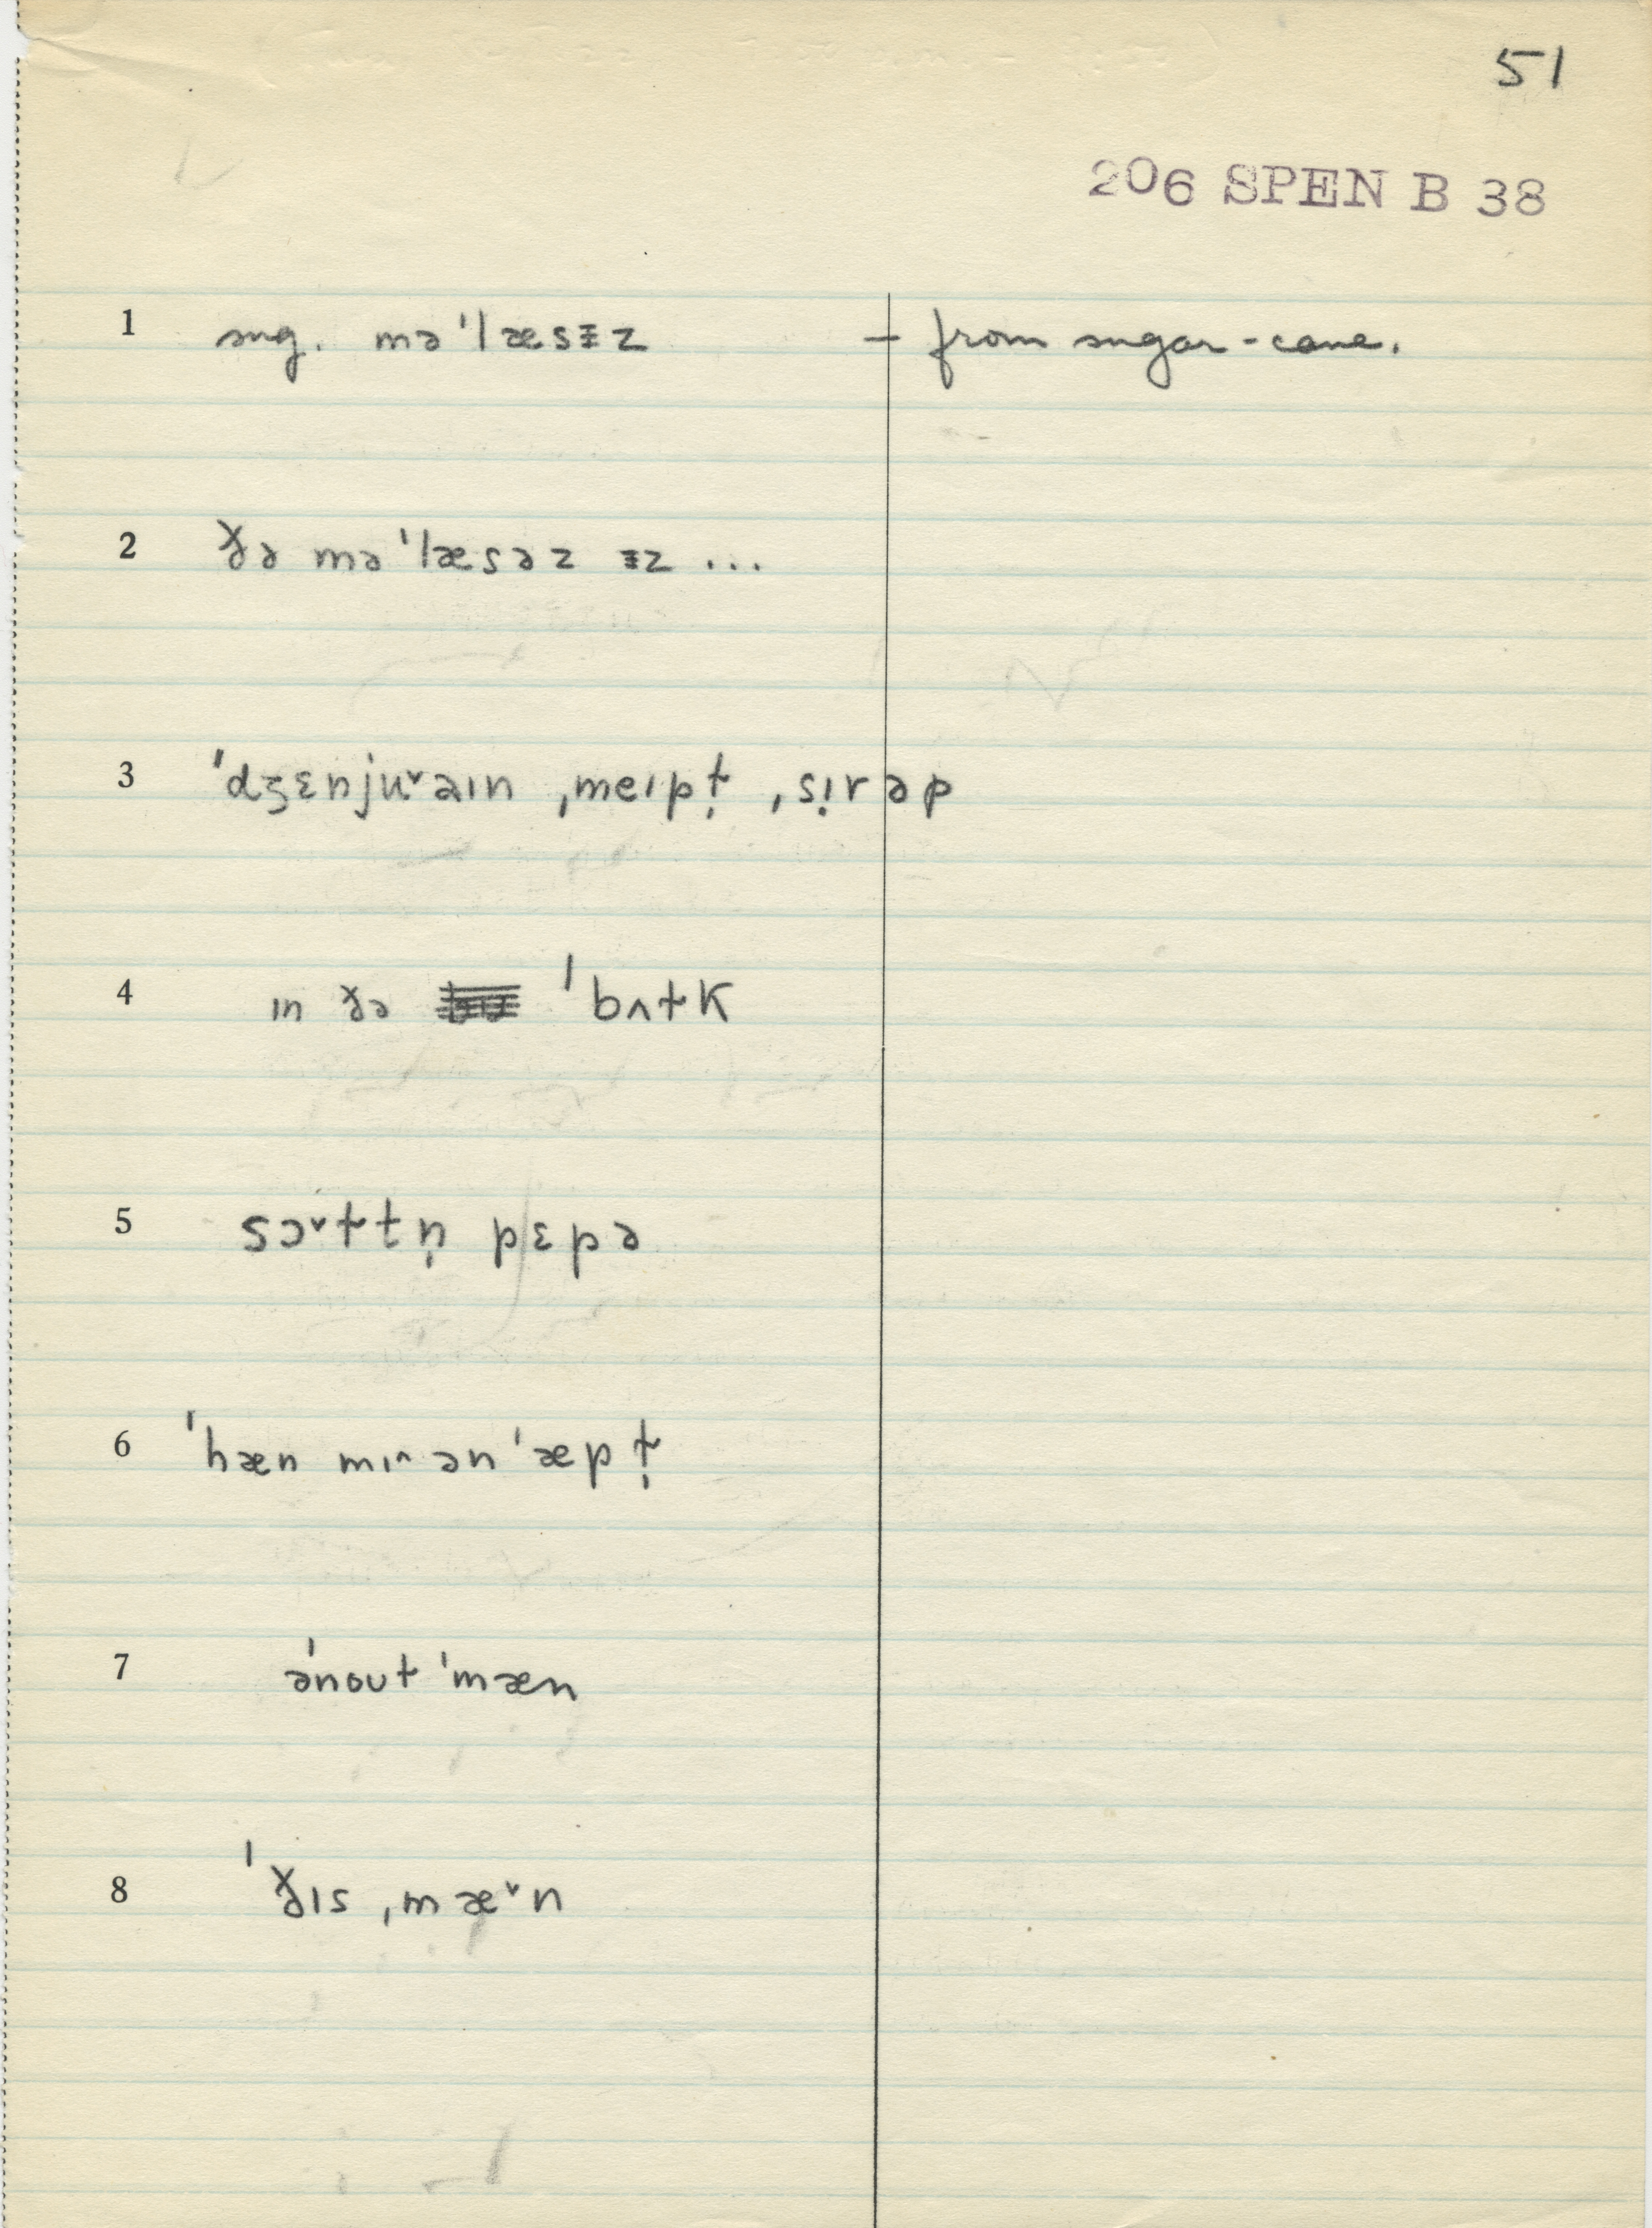 51
206 SPEN B 38
1 sug. mə'læsɪ̵z – from sugar-cane.
2 ðə mə'læsəz ɪ̵z ...
3 'dʒɛnjuˇaɪn ˌmeɪpɫ̩ ˌsɪ̣rəp
4 ɪn ðə 'bʌɫk
5 sɔˇɫtn̩ pɛpə
6 'hæn mɪ^ ən 'æpɫ̩
7 ə'noʊt 'mæn
8 'ðɪs ˌmæˇn